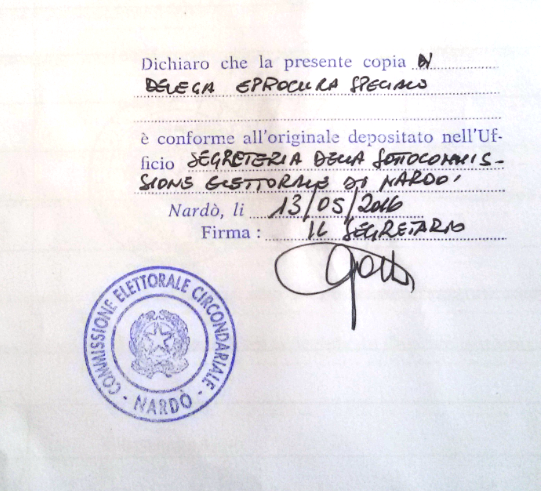 Dichiaro che la presente copia DI
DELEGA E PROCURA SPECIALE
è conforme all'originale depositato nell'Uf-
ficio SEGRETERIA DELLA SOTTOCOMMIS-
SIONE ELETTORALE DI NARDO'
Nardò, li 13/05/2016
Firma : IL SEGRETARIO
COMMISSIONE ELETTORALE CIRCONDARIALE - NARDÒ -